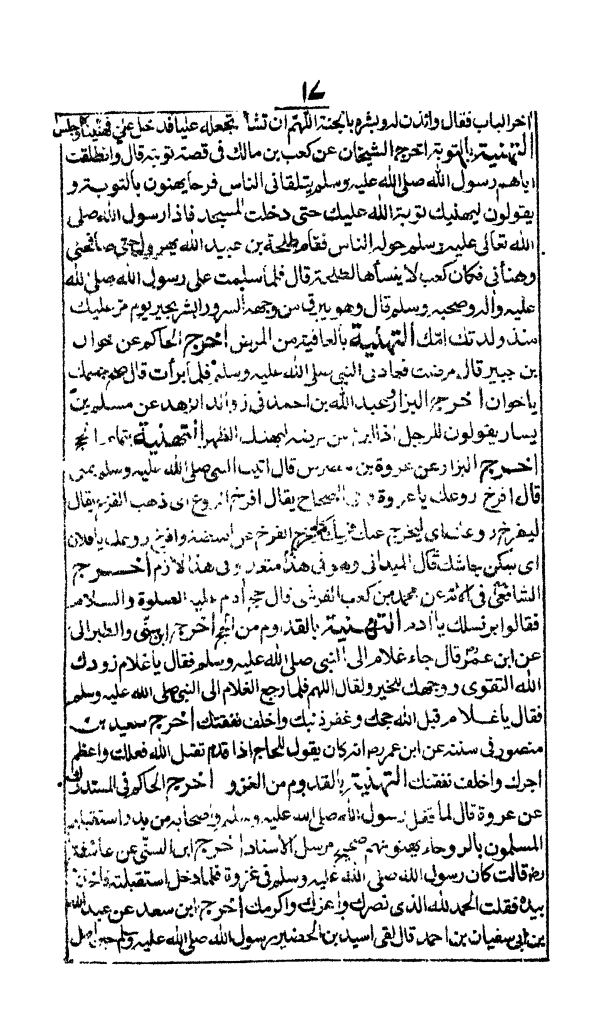 ١٧
اخر الباب فقال وائذن له وبشره بالجنة اللهم ان تشأ تجعله عليا فدخل على فهنيناه وجلس
التهنية بالتوبة اخرج الشيخان عن كعب بن مالك فى قصة توبته قال وانطلقت
اياهم رسول الله صلى الله عليه وسلم يتلقانى الناس فرحا يهنون بالتوبة و
يقولون ليهنيك توبة الله عليك حتى دخلت المسجد فاذا رسول الله صلى
الله تعالى عليه وسلم حوله الناس فقام طلحة بن عبيد الله يهرول حتى صافحنى
وهنأنى فكان كعب لا ينساها لطلحة قال فلما سلمت على رسول الله صلى الله
عليه واله وصحبه وسلم قال وهو يبرق من وجهه السرور ابشر بخير يوم مر عليك
منذ ولدتك امك التهنية بالعافية من المرض اخرج الحاكم عن خوات
بن جبير قال مرضت فعادنى النبى صلى الله عليه وسلم فلما برأت قال صح جسمك
ياخوات اخرج البزار عبد الله بن احمد فى زوائد الزهد عن مسلم بن
يسار يقولون للرجل اذا ابرأ من مرضه ليهنك الطهر التهنية بتمام الحج
اخرج البزار عن عروة بن مضرس قال اتيت النبى صلى الله عليه وسلم بمنى
قال افرخ روعك ياعروة وفى الصحاح يقال افرخ الروع اى ذهب الفزع يقال
ليفرخ روعك اى ليخرج عنك فزعك كما يخرج الفرخ عن البيضة وافرخ روعك يافلان
اى سكن جاشك قال الميدانى وهو فى هذا متعد وفى هذا لازم اخرج
الشافعى فى الام عن محمد بن كعب القرشى قال حج ادم عليه الصلوة والسلام
فقالوا بر نسلك يا ادم التهنية بالقدوم من الحج اخرج ابن سنى والطبرانى
عن ابن عمر قال جاء غلام الى النبى صلى الله عليه وسلم فقال ياغلام زودك
الله التقوى ووجهك للخير ولقال اللهم فلما رجع الغلام الى النبى صلى الله عليه وسلم
فقال ياغلام قبل الله حجك وغفر ذنبك واخلف نفقتك اخرج سعيد بن
منصور فى سننه عن ابن عمر رض انه كان يقول للحاج اذا قدم تقبل الله فعلك واعظم
اجرك واخلف نفقتك التهنية بالقدوم من الغزو اخرج الحاكم فى المستدرك
عن عروة قال لما قفل رسول الله صلى الله عليه وسلم واصحابه من بدر استقبلهم
المسلمون بالروحاء يهنونهم صحيح مرسل الاسناد اخرج ابن السنى عن عائشة
رض قالت كان رسول الله صلى الله عليه وسلم فى غزوة فلما دخل استقبلته فاخذت
بيده فقلت الحمد لله الذى نصرك واعزك واكرمك اخرج ابن سعد عن عبد الله
بن ابى سفيان بن احمد قال لقى اسيد بن الحضير رسول الله صلى الله عليه وسلم حين